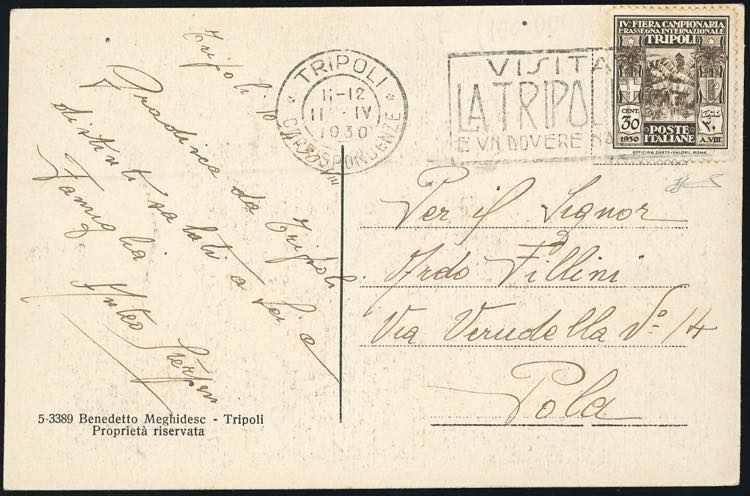 IVª FIERA CAMPIONARIA
Iª RASSEGNA INTERNAZIONALE
TRIPOLI
CENT.
30
1930
POSTE
ITALIANE
٣٠
A. VIII
OFFICINA CARTE-VALORI, ROMA
TRIPOLI
11-12
11 IV
1930
CORRISPONDENZE
VISITA
LA TRIPO
E VN DOVERE
Tripoli 10
Gradisca da Tripoli
distinti saluti a Lei e
Famiglia
Per il Signor
Ardo Fillini
Via Verudella Nº 14
Pola
5-3389 Benedetto Meghidesc - Tripoli
Proprietà riservata